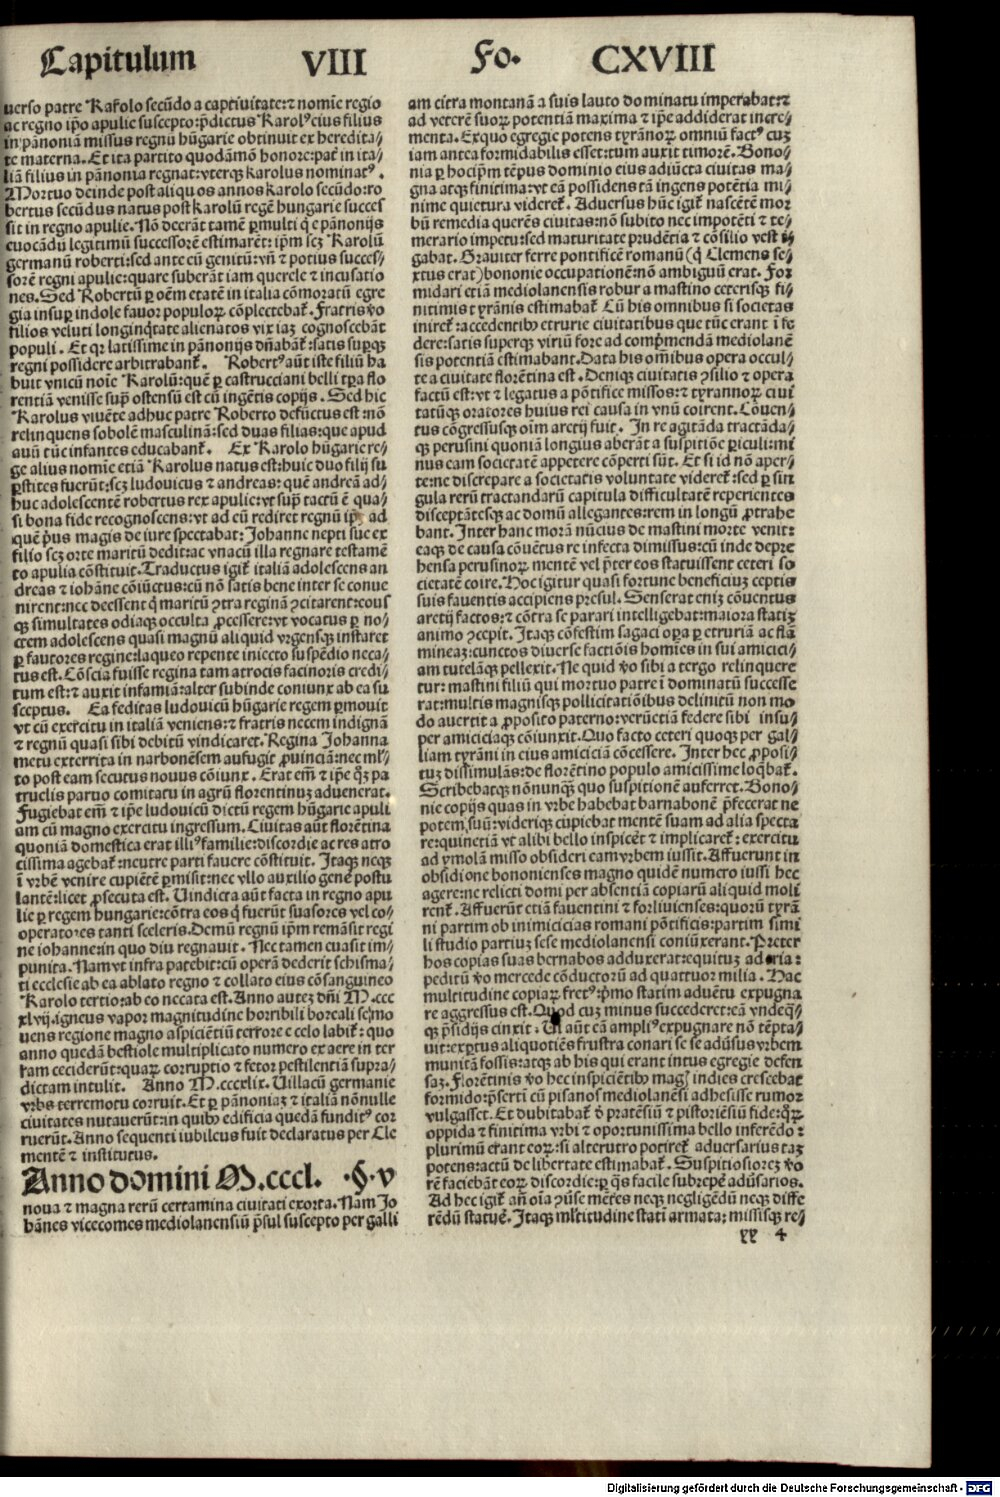 Capitulum VIII Fo. CXVIII
uerso patre Karolo secūdo a captiuitate:⁊ nomīe regio
ac regno ip̄o apulie suscepto:p̄dictus Karolꝰ eius filius
in pānoniā missus regnū hūgarie obtinuit ex heredita⸗
te materna. Et ita partito quodāmō honore:pat̄ in ita⸗
liā filius in pānonia regnat:vterqꝫ karolus nominatꝰ.
Mortuo deinde post aliquos annos karolo secūdo:ro
bertus secūdus natus post karolū regē hungarie succes
sit in regno apulie. Nō deerāt tamē ꝑmulti q̇ e pānonijs
euocādū legitimū successorē estimarēt: ip̄m scꝫ Karolū
germanū roberti:sed ante eū genitū:vn̄ ⁊ potius succes⸗
sorē regni apulie:quare suberāt iam querele ⁊ incusatio
nes. Sed Robertū ꝑ oēm etatē in italia cōmoratū egre
gia insuꝑ indole fauor populoꝝ cōplectebat̄. Fratris v̄o
filios veluti longinq̇tate alienatos vix iaꝫ cognoscebāt
populi. Et qꝛ latissime in pānonijs dn̄abāt̄:satis suꝑqꝫ
regni possidere arbitrabant̄. Robertꝰ aūt iste filiū ha
buit vnicū noīe Karolū:quē ꝑ castrucciani belli tꝑa flo
rentiā venisse sup̄ ostensū est cū ingētis copijs. Sed hic
Karolus viuēte adhuc patre Roberto defūctus est:nō
relinquens sobolē masculinā:sed duas filias:que apud
auū tūc infantes educabant̄. Ex Karolo hūgarie re⸗
ge alius nomīe etiā Karolus natus est:huic duo filij su
ꝑstites fuerūt:scꝫ ludouicus ⁊ andreas: quē andreā ad⸗
huc adolescentē robertus rex apulie:vt sup̄ tactū ē qua⸗
si bona fide recognoscens:vt ad eū rediret regnū ip̄ꝫ ad
quē p̄us magis de iure spectabat: Johanne nepti sue ex
filio scꝫ orte maritū dedit:ac vnacū illa regnare testamē
to apulia cōstituit. Traductus igit̄ italiā adolescens an
dreas ⁊ iohāne cōiūctus:cū nō satis bene inter se conue
nirent:nec deessent q̇ maritū ꝯtra reginā ꝯcitarent:eous
qꝫ simultates odiaqꝫ occulta ꝓcessere:vt vocatus ꝑ no⸗
ctem adolescens quasi magnū aliquid vrgensqꝫ instaret
ꝑ fautores regine:laqueo repente iniecto suspēdio neca⸗
tus est. Cōscia fuisse regina tam atrocis facinoris credi⸗
tum est:⁊ auxit infamiā:alter subinde coniunx ab ea su
sceptus. Ea feditas ludouicū hūgarie regem ꝑmouit
vt cū exercitu in italiā veniens:⁊ fratris necem indignā
⁊ regnū quasi sibi debitū vindicaret. Regina Johanna
metu exterrita in narbonēsem aufugit ꝓuinciā:nec ml̄⸗
to post eam secutus nouus cōiunx. Erat em̄ ⁊ ip̄e q̄ꝫ pa
truelis paruo comitatu in agrū florentinuꝫ aduenerat.
Fugiebat em̄ ⁊ ip̄e ludouicū dictū regem hūgarie apuli
am cū magno exercitu ingressum. Ciuitas aūt florētina
quoniā domestica erat illiꝰ familie:discordie ac res atro
cissima agebat̄:neutre parti fauere cōstituit. Itaqꝫ neqꝫ
ī vrbē venire cupiētē ꝑmisit:nec vllo auxilio gene postu
lantē:licet ꝓsecuta est. Uindicta aūt facta in regno apu
lie ꝑ regem hungarie:cōtra eos q̇ fuerūt suasores vel co⸗
operatores tanti sceleris. Demū regnū ip̄m remāsit regi
ne iohanne:in quo diu regnauit. Nec tamen euasit im⸗
punita. Nam vt infra patebit:cū operā dederit schisma⸗
ti ecclesie ab ea ablato regno ⁊ collato eius cōsanguineo
Karolo tertio:ab eo necata est. Anno auteꝫ dn̄i M.ccc
xlvij.igneus vapor magnitudine horribili boreali se mo
uens regione magno aspiciētiū terrore e celo labit̄: quo
anno quedā bestiole multiplicato numero ex aere in ter
ram ceciderūt:quaꝝ corruptio ⁊ fetor pestilentiā supra⸗
dictam intulit. Anno M.cccxlix. Uillacū germanie
vrbs terremotu corruit. Et ꝑ pānoniaꝫ ⁊ italiā nōnulle
ciuitates nutauerūt:in quibꝰ edificia quedā funditꝰ cor
ruerūt. Anno sequenti iubileus fuit declaratus per Cle
mentē ⁊ institutus.
Anno domini M.cccl. .§. v
noua ⁊ magna rerū certamina ciuitati exorta. Nam Jo
hānes vicecomes mediolanensiū p̄sul suscepto per galli
am citra montanā a suis lauto dominatu imperabat:⁊
ad veterē suoꝝ potentiā maxima ⁊ ip̄e addiderat incre⸗
menta. Ex quo egregie potens tyrānoꝝ omniū factꝰ cuꝫ
iam antea formidabilis esset:tum auxit timorē. Bono⸗
nia ꝑ hoc ip̄m tēpus dominio eius adiūcta ciuitas ma⸗
gna atqꝫ finitima:vt eā possidens tā ingens potētia mi⸗
nime quietura videret̄. Aduersus hūc igit̄ nascētē mor
bū remedia querēs ciuitas:nō subito nec impotēti ⁊ te⸗
merario impetu:sed maturitate prudētia ⁊ cōsilio vesti
gabat. Grauiter ferre pontificē romanū (q̇ Clemens se⸗
xtus erat) bononie occupationē:nō ambiguū erat. For
midari etiā mediolanensis robur a mastino ceterisqꝫ fi⸗
nitimis tyrānis estimabat̄. Cū his omnibus si societas
iniret̄:accedentibꝰ etrurie ciuitatibus que tūc erant ī fe
dere:satis superqꝫ viriū fore ad comp̄mendā mediolanē
sis potentiā estimabant. Data his om̄ibus opera occul⸗
te a ciuitate florētina est. Deniqꝫ ciuitatis ꝯsilio ⁊ opera
factū est:vt ⁊ legatus a pōtifice missos:⁊ tyrannoꝝ ciui
tatūqꝫ oratores huius rei causa in vnū coirent. Cōuen⸗
tus cōgressusqꝫ oīm aretij fuit. In re agitāda tractāda⸗
qꝫ perusini quoniā longius aberāt a suspitiōe ꝑiculi:mi
nus eam societatē appetere cōperti sūt. Et si id nō aper⸗
te:ne discrepare a societatis voluntate videret̄:sed ꝑ sin
gula rerū tractandarū capitula difficultatē reperientes
disceptātesqꝫ ac domū allegantes:rem in longū ꝓtrahe
bant. Inter hanc morā nūcius de mastini morte venit:
eaqꝫ de causa cōuētus re infecta dimissus:cū inde depre
hensa perusinoꝝ mentē vel p̄ter eos statuissent ceteri so
cietatē coire. Hoc igitur quasi fortune beneficiuꝫ ceptis
suis fauentis accipiens presul. Senserat eniꝫ cōuentus
aretij factos:⁊ cōtra se parari intelligebat:maiora statiꝫ
animo ꝯcepit. Itaqꝫ cōfestim sagaci oꝑa ꝑ etruriā ac flā
mineaꝫ:cunctos diuerse factiōis homīes in sui amicici⸗
am tutelāqꝫ pellexit. Ne quid v̄o sibi a tergo relinquere
tur: mastini filiū qui mortuo patre ī dominatū successe
rat:multis magnisqꝫ pollicitatiōibus delinitū non mo
do auertit a ꝓposito paterno:verūetiā federe sibi insu⸗
per amiciciaqꝫ cōiunxit. Quo facto ceteri quoqꝫ per gal⸗
liam tyrāni in eius amiciciā cōcessere. Inter hec ꝓposi⸗
tuꝫ dissimulās:de florētino populo amicissime loq̄bat̄.
Scribebatqꝫ nōnunqꝫ quo suspitionē auferret. Bono⸗
nie copijs quas in vrbe habebat barnabonē p̄fecerat ne
potem suū:viderīqꝫ cupiebat mentē suam ad alia specta
re:quinetiā vt alibi bello inspicēt̄ ⁊ implicaret̄: exercitu
ad ymolā misso obsideri eam vrbem iussit. Affuerunt in
obsidione bononienses magno quidē numero iussi hec
agere:ne relicti domi per absentiā copiarū aliquid moli
rent̄. Affuerūt etiā fauentini ⁊ forliuienses:quorū tyrā
ni partim ob inimicicias romani pōtificis:partim simi
li studio partiuꝫ sese mediolanensi coniūxerant. Preter
hos copias suas bernabos adduxerat:equituꝫ ad tria:
peditū v̄o mercede cōductorū ad quattuor milia. Hac
multitudine copiaꝝ fretꝰ:p̄mo statim aduētu expugna
re aggressus est. Quod cuꝫ minus succederet:eā vndeqꝫ⸗
qꝫ p̄sidijs cinxit. Ut aūt eā ampliꝰ expugnare nō tēpta⸗
uit:exꝑtus aliquotiēs frustra conari se se adūsus vrbem
munitā fossis:atqꝫ ab his qui erant intus egregie defen
saꝫ. Florētinis v̄o hec inspiciētibꝰ magꝭ indies crescebat
formido:p̄serti cū pisanos mediolanēsi adhesisse rumor
vulgasset. Et dubitabat̄ ⁊ pratēsiū ⁊ pistoriēsiū fide:q̇ꝝ
oppida ⁊ finitima vrbi ⁊ oportunissima bello inferēdo:
plurimū erant eoꝝ:si alterutro potiret̄ aduersarius taꝫ
potens:actū de libertate estimabat̄. Suspitiosiorez v̄o
rē faciebāt eoꝝ discordie:ꝑ q̄s facile subrepē adūsarios.
Ad hec igit̄ an̄ oīa ꝯūse mētes neqꝫ negligēdū neqꝫ diffe
rēdū statuē. Itaqꝫ ml̄titudine stati armata: missisqꝫ re⸗
xx 4
Digitalisierung gefördert durch die Deutsche Forschungsgemeinschaft - DFG